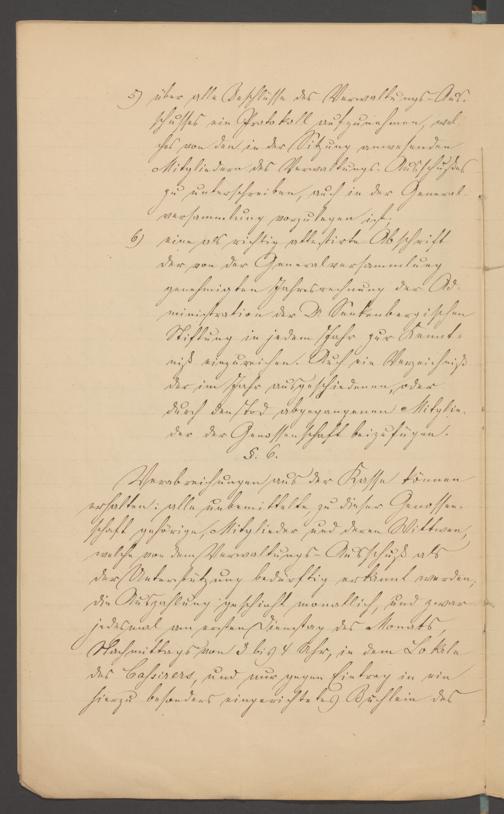 5) über alle Beschlüsse des Verwaltungs-Aus-
schusses ein Protokoll aufzunehmen, wel-
ches von den in der Sitzung anwesenden
Mitgliedern des Verwaltungs-Ausschußes
zu unterschreiben, auch in der General-
versammlung vorzulegen ist;
6) eine als richtig attestirte Abschrift
der von der Generalversammlung
genehmigten Jahresrechnung der Ad-
ministration der Dr Senkenbergischen
Stiftung in jedem Jahr zur Kennt-
niß einzureichen. Auch ein Verzeichniß
der im Jahr ausgeschiedenen, oder
durch den Tod abgegangenen Mitglie-
der der Genossenschaft beizufügen.
§. 6.
Verabreichungen aus der Kasse können
erhalten: alle unbemittelte zu dieser Genossen-
schaft gehörige, Mitglieder und deren Wittwen,
welche von dem Verwaltungs-Ausschuß als
der Unterstützung bedürftig erkannt werden;
die Auszahlung geschieht monatlich, und zwar
jedesmal am ersten Dienstag des Monats,
Nachmittags von 3 bis 4 Uhr, in dem Lokale
des Cassirers, und nur gegen Eintrag in ein
hierzu besonders eingerichtetes Büchlein des